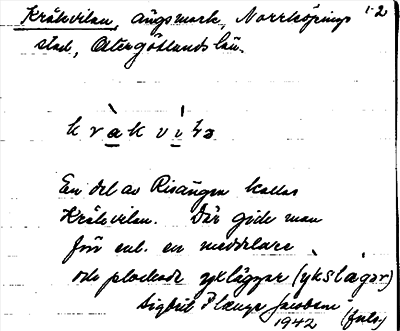 Kråkvilan, ängsmark, Norrköpings 1-2
stad, Östergötlands län.
kråkvila
En del av Risängen kallas
Kråkvilan. Där gick man
för enl. en meddelare
och plockade ykläggar (ykslagar)
Sigfrid Plænge Jacobson
1942 (fuls.)